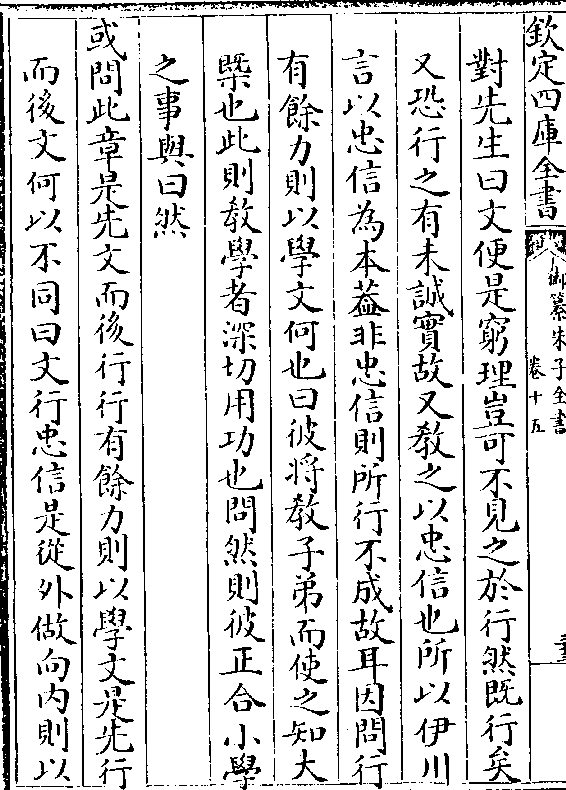 欽定四庫全書
御纂朱子全書
卷十五
對先生曰文便是窮理豈可不見之於行然既行矣
又恐行之有未誠實故又教之以忠信也所以伊川
言以忠信為本葢非忠信則所行不成故耳因問行
有餘力則以學文何也曰彼將教子弟而使之知大
槩也此則教學者深切用功也問然則彼正合小學
之事與曰然
或問此章是先文而後行行有餘力則以學文是先行
而後文何以不同曰文行忠信是從外做向内則以